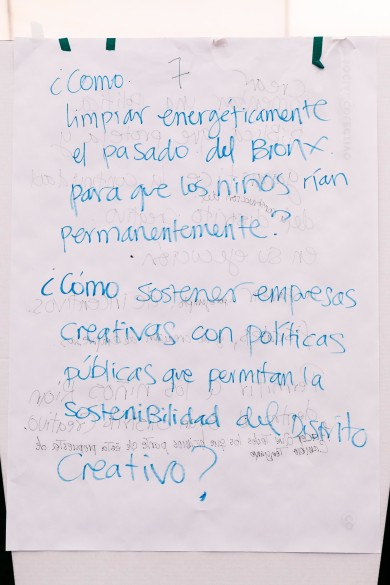 ¿Como. 7
limpiar energéticamente
el pasado del Bronx
para que los niños rían
permanentemente?
¿Cómo sostener empresas
creativas con políticas
públicas que permitan la
sosteniBilidad del Distrito
Creativo?